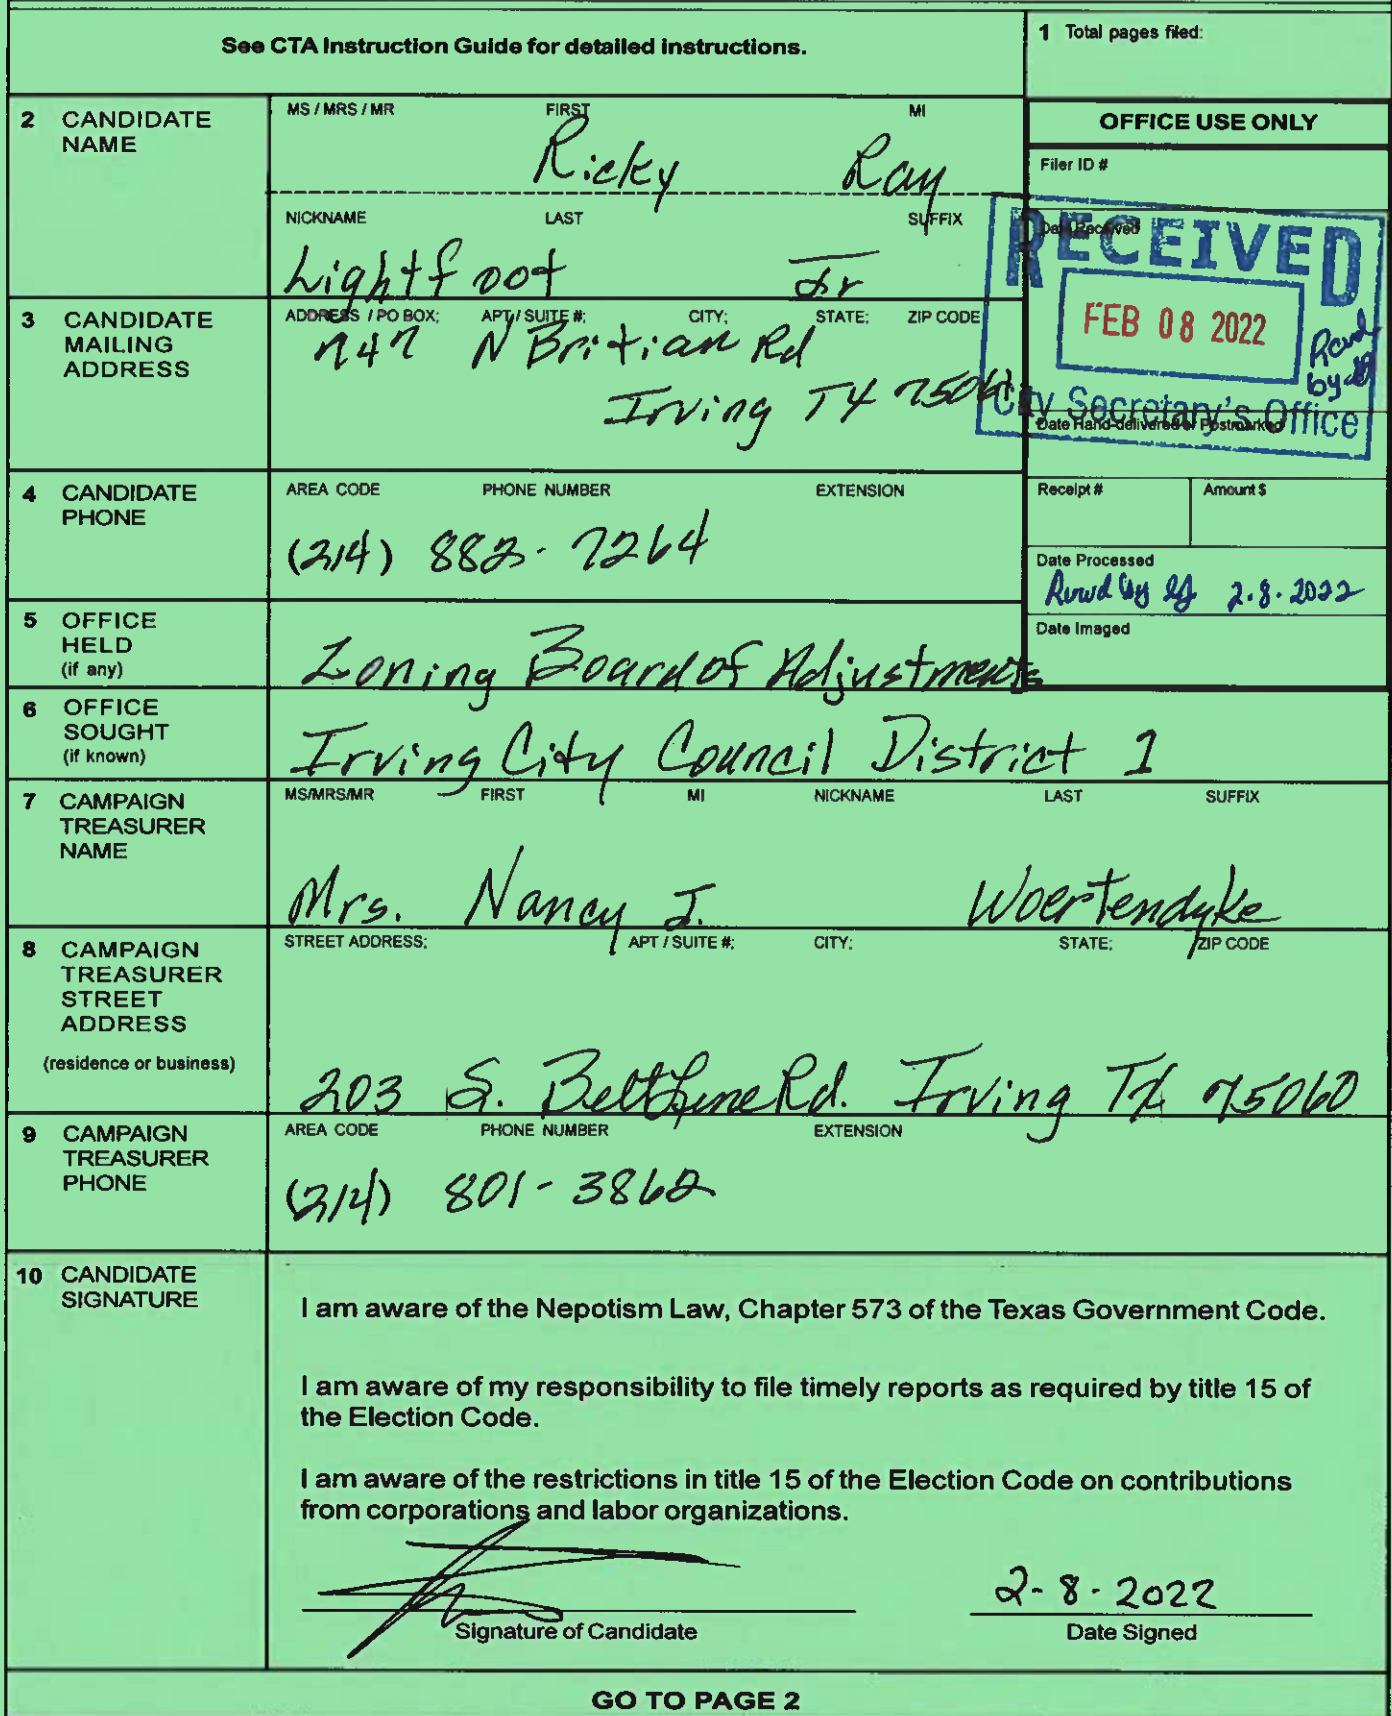 See CTA Instruction Guide for detailed instructions.
1 Total pages filed:
2 CANDIDATE NAME
MS / MRS / MR FIRST MI
Ricky Ray
NICKNAME LAST SUFFIX
Lightfoot Jr
OFFICE USE ONLY
Filer ID #
Date Received
RECEIVED
FEB 08 2022
Rcvd by
City Secretary's Office
Date Hand-delivered or Postmarked
3 CANDIDATE MAILING ADDRESS
ADDRESS / PO BOX; APT / SUITE #; CITY; STATE; ZIP CODE
747 N Britian Rd
Irving TX 75061
4 CANDIDATE PHONE
AREA CODE PHONE NUMBER EXTENSION
(214) 882-7264
Receipt # Amount $
Date Processed
Rcvd by 2.8.2022
Date Imaged
5 OFFICE HELD (if any)
Zoning Board of Adjustments
6 OFFICE SOUGHT (if known)
Irving City Council District 1
7 CAMPAIGN TREASURER NAME
MS/MRS/MR FIRST MI NICKNAME LAST SUFFIX
Mrs. Nancy J. Woertendyke
8 CAMPAIGN TREASURER STREET ADDRESS
(residence or business)
STREET ADDRESS; APT / SUITE #; CITY; STATE; ZIP CODE
203 S. Beltline Rd. Irving TX 75060
9 CAMPAIGN TREASURER PHONE
AREA CODE PHONE NUMBER EXTENSION
(214) 801-3862
10 CANDIDATE SIGNATURE
I am aware of the Nepotism Law, Chapter 573 of the Texas Government Code.
I am aware of my responsibility to file timely reports as required by title 15 of
the Election Code.
I am aware of the restrictions in title 15 of the Election Code on contributions
from corporations and labor organizations.
2-8-2022
Signature of Candidate Date Signed
GO TO PAGE 2